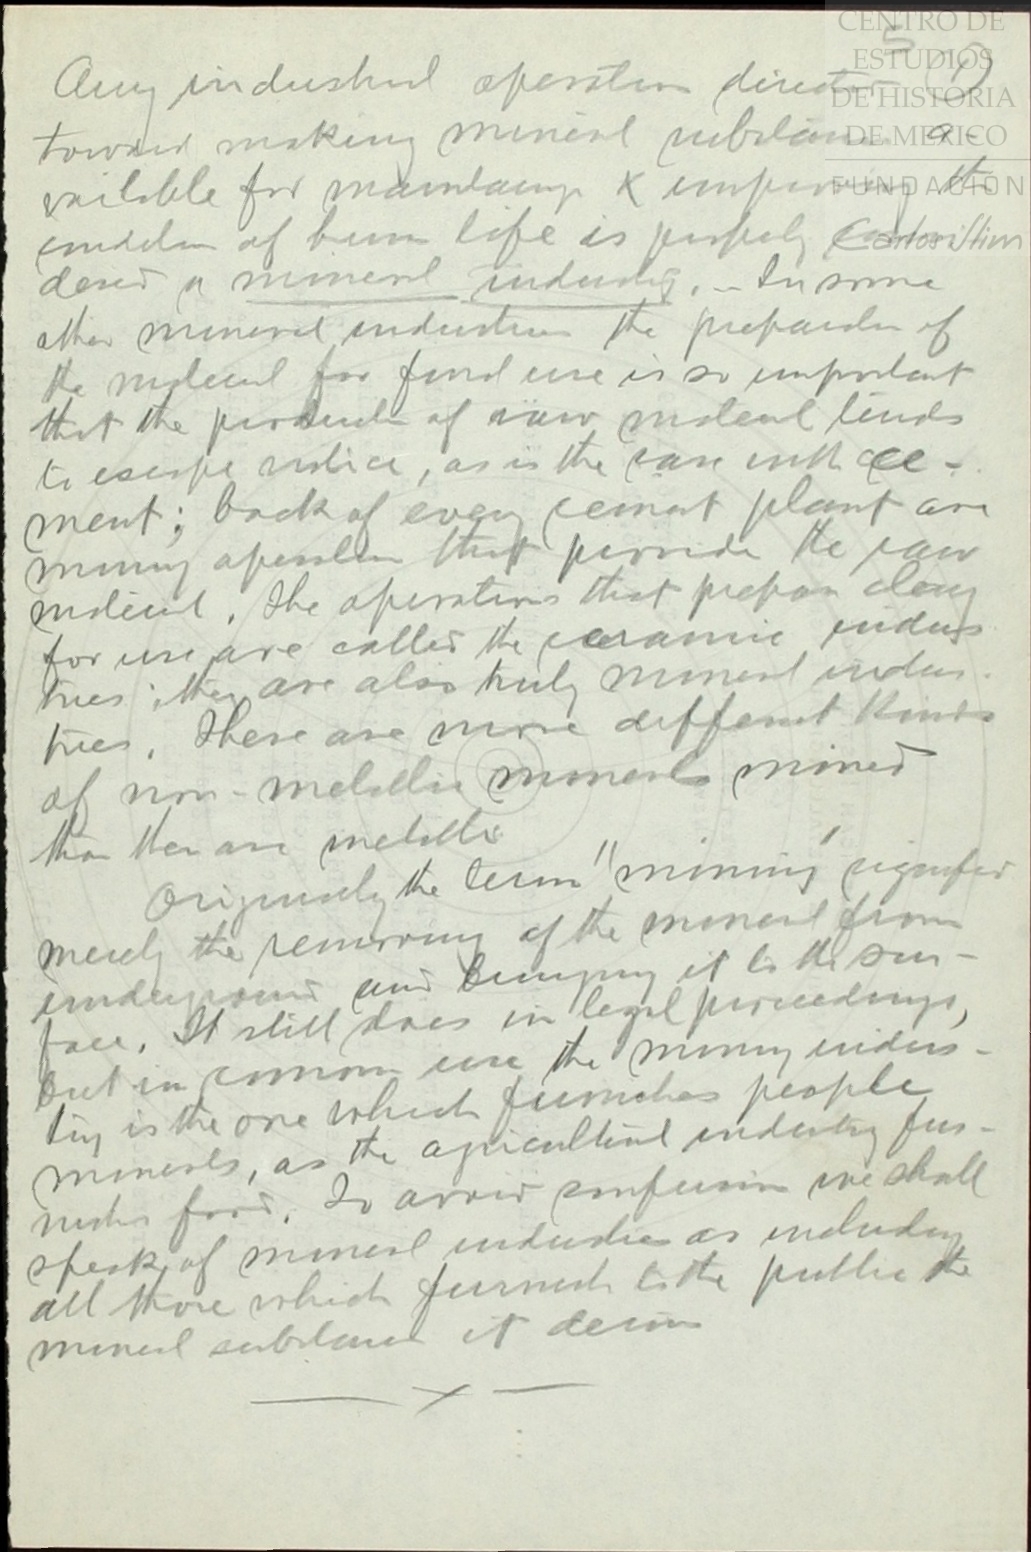 CENTRO DE
ESTUDIOS
DE HISTORIA
DE MEXICO
FUNDACIÓN
5
(1)
Any industrial operation directed
toward making mineral substances a-
vailable for maintaining & improving the
condition of human life is properly consi
dered a mineral industry. - In some
other mineral industries the preparation of
the material for final use is so important
that the production of raw material tends
to escape notice, as is the case with ce-
ment; back of every cement plant are
mining operations that provide the raw
material. The operations that prepare clay
for use are called the ceramic indus
tries; they are also truly mineral indus-
tries. There are more different kinds
of non-metallic minerals mined
than there are metallic
Originally the term "mining" signified
merely the removing of the mineral from
underground and bringing it to the sur-
face. It still does in legal proceedings,
but in common use the mining indus-
try is the one which furnishes people
minerals, as the agricultural industry fur-
nishes food. To avoid confusion we shall
speak of mineral industries as including
all those which furnish to the public the
mineral substances it desires
— x —